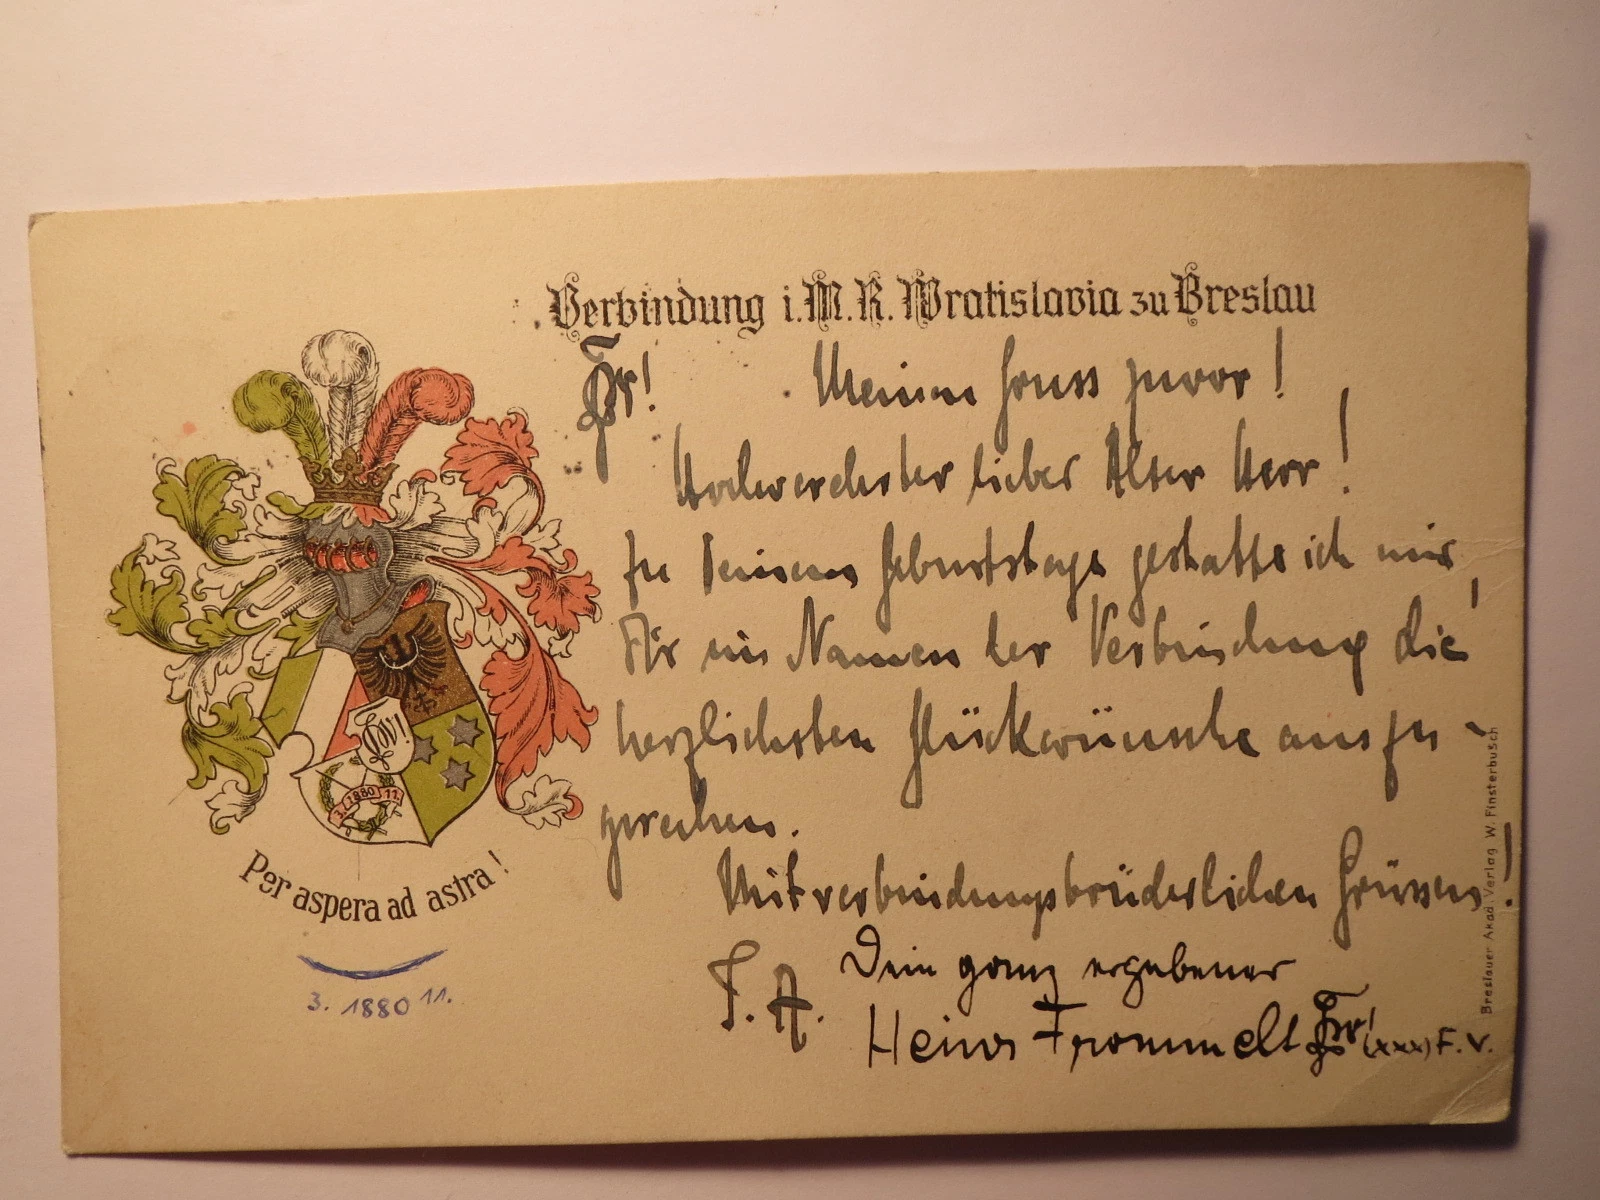 Verbindung i. M. R. Wratislavia zu Breslau
Meinen Gruss zuvor!
Hochverehrter lieber Alter Herr!
Zu Deinem Geburtstage gestatte ich mir
Dir im Namen der Verbindung die
herzlichsten Glückwünsche auszu-
sprechen.
Mit verbindungsbrüderlichen Grüssen!
I. A. Dein ganz ergebener
Heinz Frommelt (xxx) F. V.
3. 1880 11.
Per aspera ad astra!
3. 1880 11.
Breslauer Akad. Verlag W. Finsterbusch